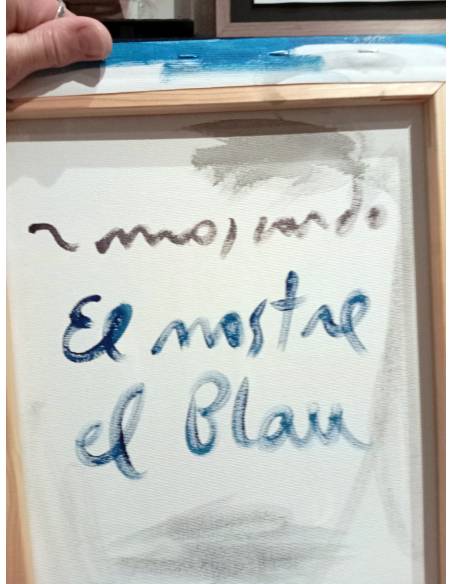 El nostre
el Blau